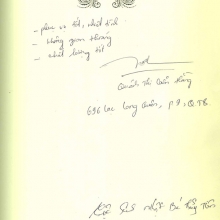 - phục vụ tốt, nhiệt tình
- không gian thoáng
- chất lượng tốt
Quách Thị Diễm Hằng
696 Lạc Long Quân, P9, Q.TB
nhật Bá Tân